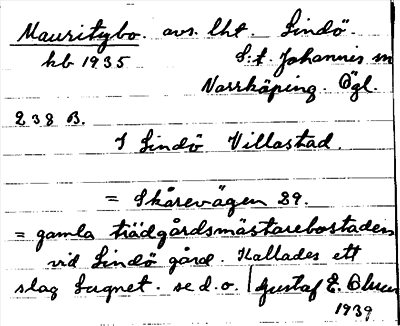 Mauritzbo. avs. lht. Lindö.
kb 1935 S:t Johannis m
Norrköping. Ögl.
238 B.
I Lindö Villastad.
= Skårevägen 29.
= gamla trädgårdsmästarebostaden
vid Lindö gård. Kallades ett
slag Lugnet. se d. o. Gustaf E.
1939